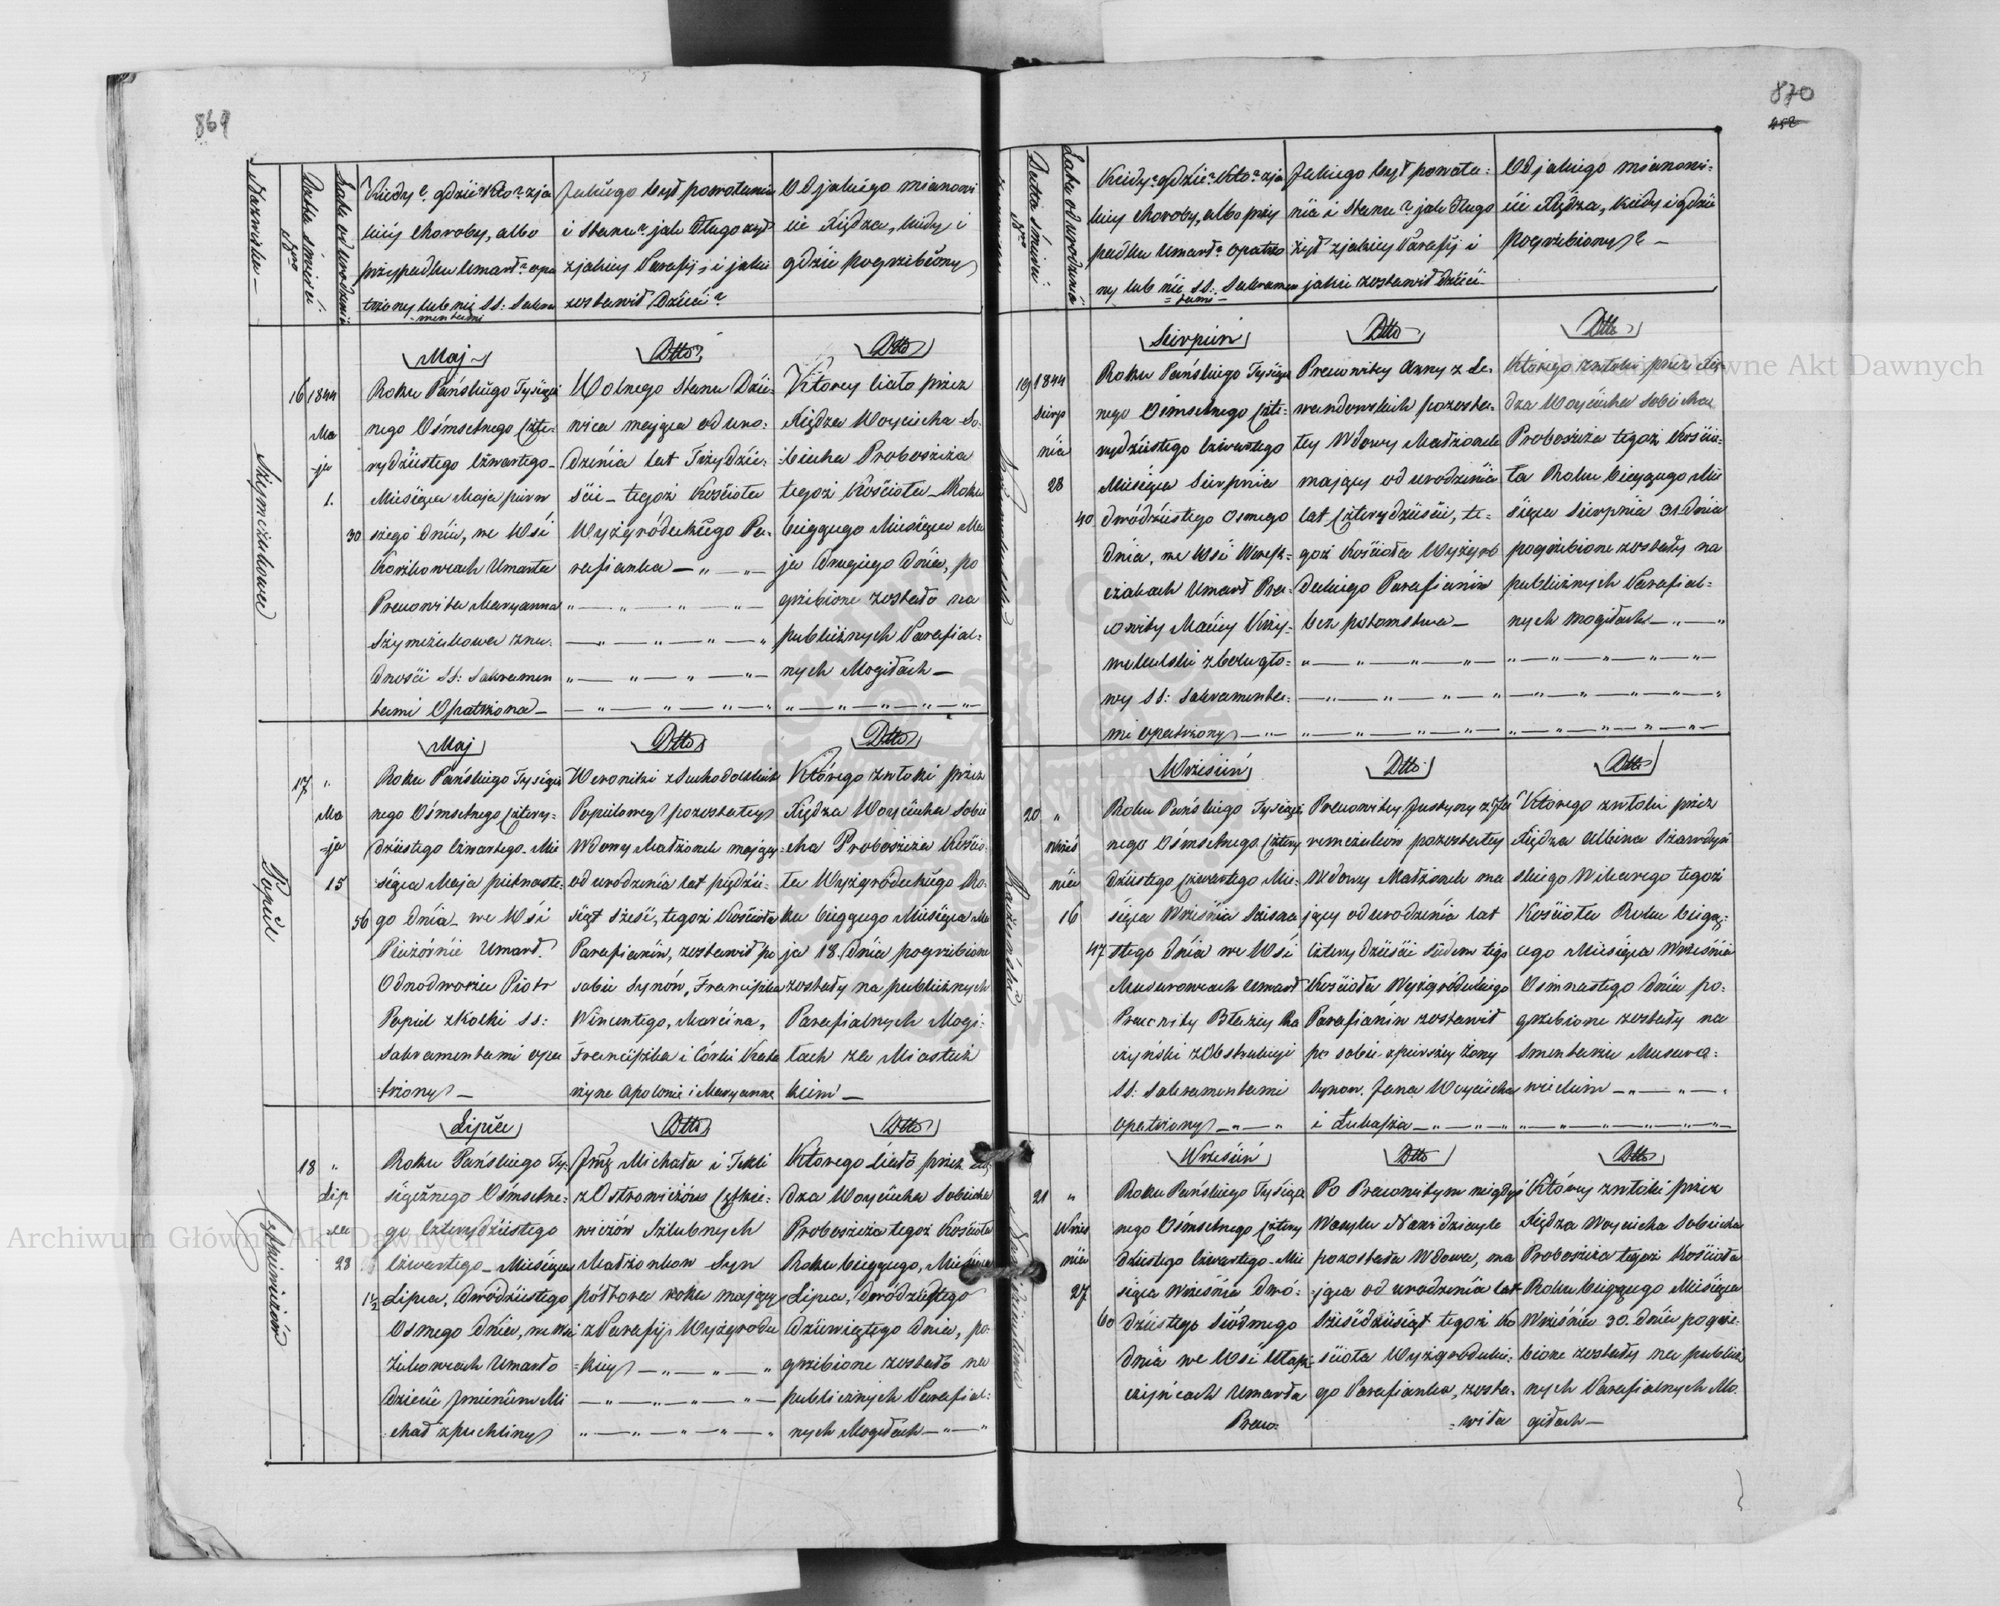 869
Nazwisko
Nro
Data śmierci
Lata od urodzenia
Kiedy? gdzie? Kto? z ja
kiej choroby, albo
przypadku Umarł? opa
trzony lub nie SS: Sakra
mentami
Jakiego był powołania
i Stanu? jak długo żył
z jakiej Parafij, i jakie
zostawił Dzieci?
Od jakiego mianowi
cie Xiędza, kiedy i
gdzie pogrzebiony
Szymczukowa
16
1844
Ma
ja
1.
30
Maj
Roku Pańskiego Tysiącz
nego Ośmsetnego Czte-
rydziestego Czwartego-
Miesiąca Maja pierw
szego dnia, we Wsi
Umarła
Pracowita Maryanna
Szymczukowa znu-
dności SS: Sakramen
tami Opatrzona-
Dtto
Wolnego Stanu Dzie-
wica mająca od uro-
dzenia lat Trzydzie-
ści- tegoż Kościoła
Wyżgródeckiego Pa-
rafianka
Dtto
Ktorey ciało przez
Xiędza Woyciecha So-
biecha Proboszcza
tegoż Kościoła Roku
bieżącego Miesiąca Ma
ja Drugiego Dnia, po
grzebione zostało na
publicznych Parafial-
nych Mogiłach-
Popiel
17
"
Ma
-ja
15
56
Maj
Roku Pańskiego Tysiącz
nego Ośmsetnego Cztery-
dziestego Czwartego- Mie
siąca Maja piętnaste-
go dnia- we Wsi
Umarł
Odnodworzec Piotr
Popiel z Kolki SS:
Sakramentami opa
-trzony-
Dtto
Weroniki z Suchodolskich
Popielowey pozostałey
Wdowy Małżonek mający
od urodzenia lat pięćdzie-
siąt sześć, tegoż Kościoła
Parafianin, zostawił po
sobie Synów, Franciszka
Wincentego, Marcina,
Franciszka i Córki Kata
rzynę Apolonie i Maryanne
Dtto
Którego zwłoki przez
Xiędza Woyciecha Sobie
cha Proboszcza Kościo-
ła Wyżgródeckiego Ro-
ku bieżącego Miesiąca Ma
ja 18. dnia pogrzebione
zostały na publicznych
Parafialnych Mogi-
łach za Miastecz
kiem-
18
"
Lip
ca
28
1½
Lipiec
Roku Pańskiego Ty-
siącznego Ośmsetne-
go Czterydziestego
Czwartego- Miesiąca
Lipca, Dwódziestego
Osmego Dnia, we Wsi
Żukowcach Umarło
Dziecie Jmieniem Mi
chał z puchliny
Dtto
Michała i Tekli
z Ostrowiczów
Szlubnych
Małżonkow Syn
półtora roku mający
z Parafij Wyżgrodec
-kiey
Dtto
Którego ciało przez Xię
dza Woyciecha Sobiecha
Proboszcza tegoż Kościoła
Roku bieżącego, Miesiąca
Lipca, dwódziestego
Dziewiątego Dnia, po-
grzebione zostało na
publicznych Parafial-
nych Mogiłach
870
Nro
Data śmierci
Lata od urodzenia
Kiedy? gdzie? Kto? z ja
kiej choroby, albo przy
padku Umarł? opatrzo
ny lub nie SS: Sakramen
tami
Jakiego był powoła-
nia i Stanu? jak długo
żył z jakiej Parafij i
jakie zostawił dzieci
Od jakiego mianowi-
cie Xiędza, kiedy i gdzie
pogrzebiony?-
19
1844
Sierp
nia
28
40
Sierpień
Roku Pańskiego Tysiącz
nego Ośmsetnego Czte-
rydziestego Czwartego
Miesiąca Sierpnia
dwódziestego Osmego
dnia, we Wsi
Umarł Pra-
cowity Maciey Krzy-
SS: Sakramenta-
mi opatrzony
Dtto
Pracowitey Anny z Le-
wandowskich pozosta-
łey Wdowy Małżonek
mający od urodzenia
lat Czterydzieści, te-
goż Kościoła Wyżgro
deckiego Parafianin
bez potomstwa-
Dtto
Którego zwłoki przez Xię-
dza Woyciecha Sobiecha
Proboszcza tegoż Kościo-
ła Roku bieżącego Mie
siąca Sierpnia 31. Dnia
pogrzebione zostały na
publicznych Parafial-
nych mogiłach
Raczyński
20
"
Wrześ
nia
16
47
Wrzesień
Roku Pańskiego Tysiącz
nego Ośmsetnego Cztery
dziestego Czwartego Mie-
siąca Września Szesna
stego Dnia we Wsi
Musurowcach Umarł
Pracowity Błażey Ra
czyński z Obstrukcyi
SS: Sakramentami
opatrzony
Dtto
Pracowitey Justyny z Ja
remczuków pozostałey
Wdowy Małżonek ma
jący od urodzenia lat
Czterydzieści siedem tego
Kościoła Wyżgródeckiego
Parafianin zostawił
po sobie z pierwszey Żony
synow. Jana Woyciecha
i Łukasza
Dtto
Którego zwłoki przez
Xiędza Albina Szawdyń
skiego Wikarego tegoż
Kościoła Roku bieżą-
cego Miesiąca Września
Osimnastego Dnia po-
grzebione zostały na
Smentarzu Musuro-
wieckim
21
"
Wrześ
nia
27
60
Wrzesień
Roku Pańskiego Tysiącz
nego Ośmsetnego Cztery
dziestego Czwartego- Mie
siąca Września Dwó-
dziestego Siódmego
dnia we Wsi
Umarła
Praco-
Dtto
Po Pracowitym niegdyś
Wasylu
pozostała Wdowa, ma
-jąca od urodzenia lat
Sześćdziesiąt tegoż Ko
ścioła Wyżgrodeckie-
go Parafianka, zosta-
-wiła
Dtto
Którey zwłoki przez
Xiędza Woyciecha Sobiecha
Proboszcza tegoż Kościoła
Roku bieżącego Miesiąca
Września 30. dnia pogrze-
bione zostały na publicz
nych Parafialnych Mo
giłach-
Archiwum Główne Akt Dawnych
Archiwum Główne Akt Dawnych
Archiwum Główne Akt Dawnych